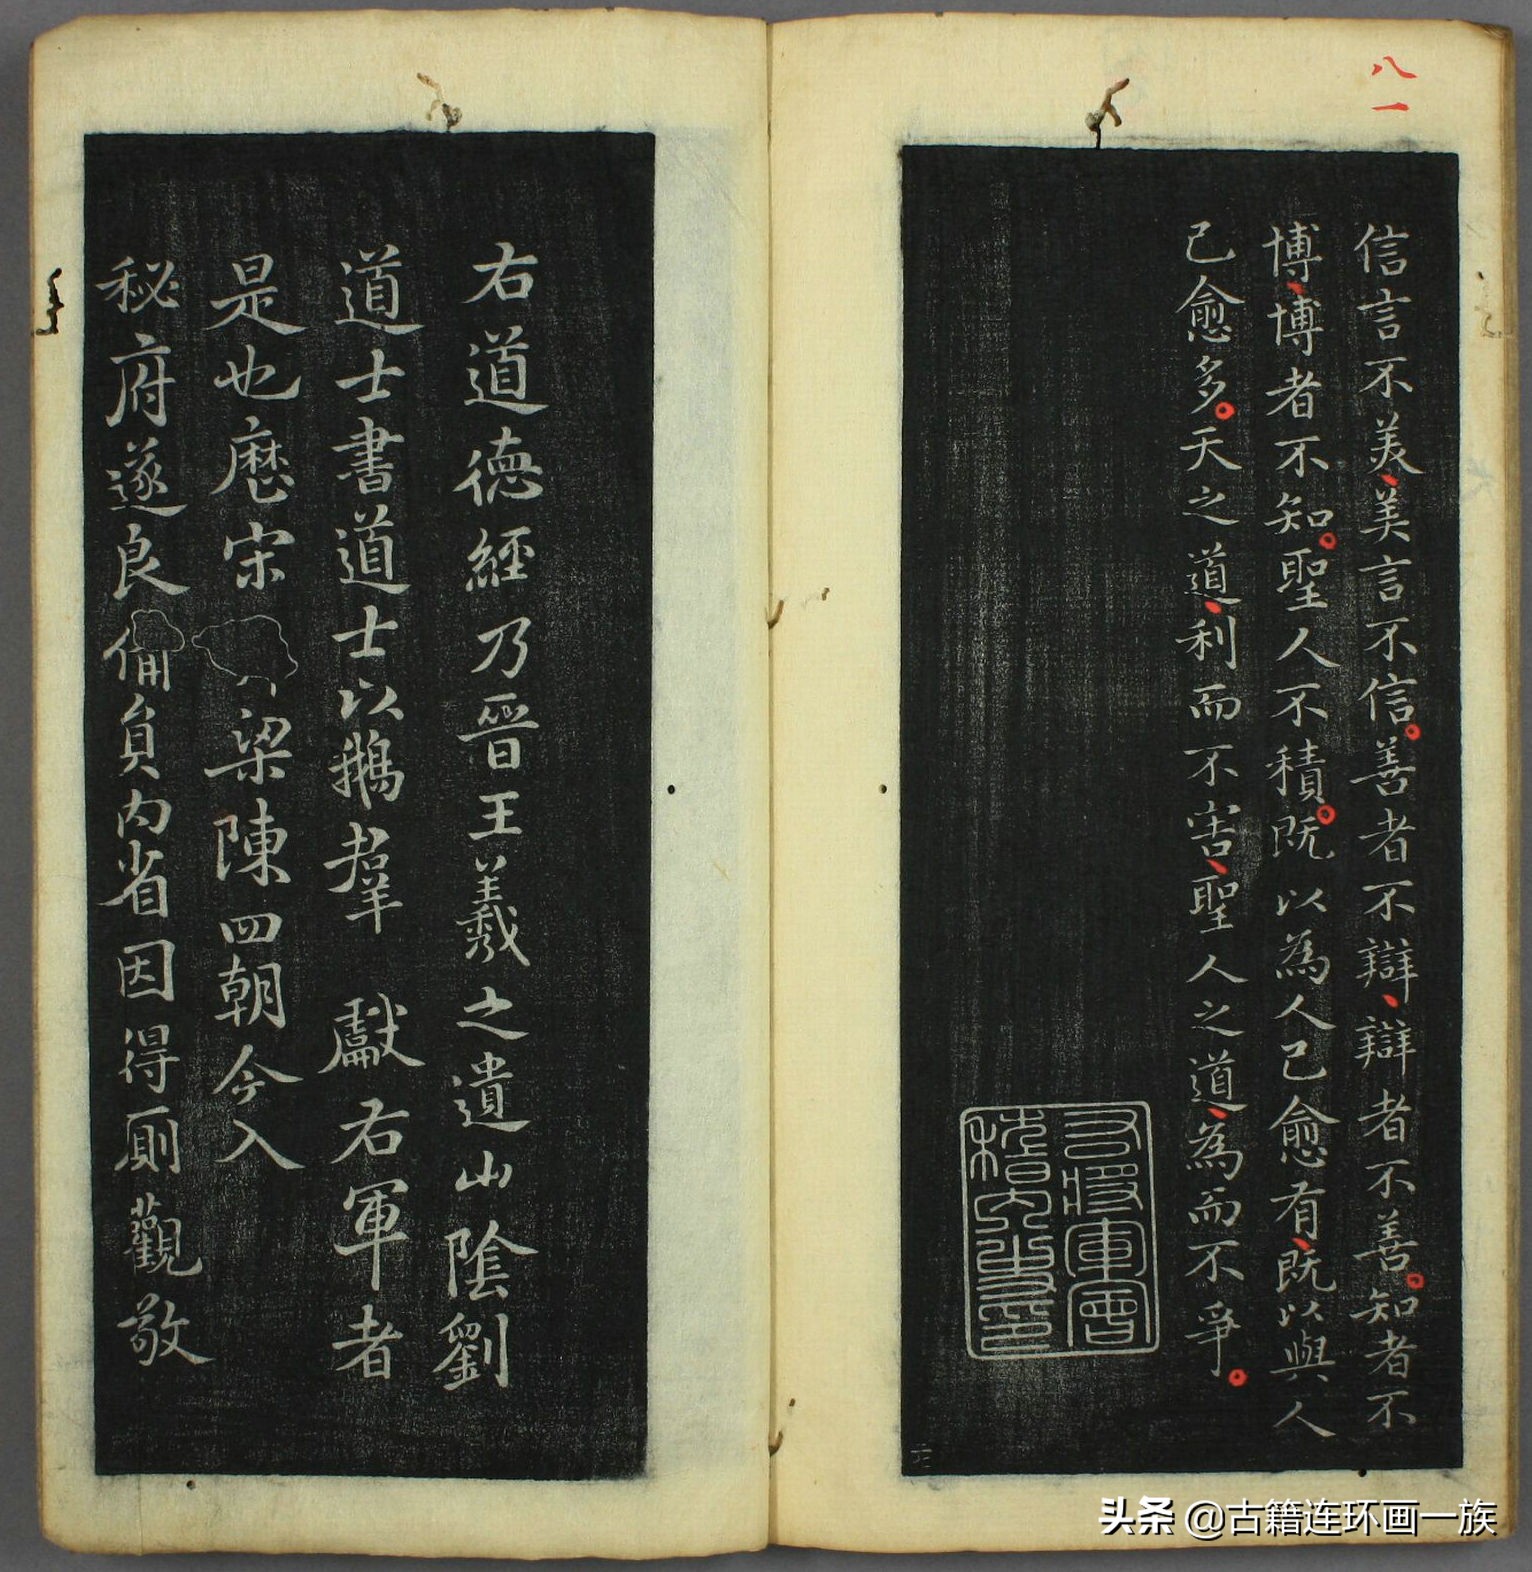 八一
信言不美美言不信善者不辯辯者不善知者不
博博者不知聖人不積既以為人己愈有既以與人
己愈多天之道利而不害聖人之道為而不爭
右將軍會
稽內史印
右道德經乃晉王羲之遺山陰劉
道士書道士以鵝羣獻右軍者
是也歷宋梁陳四朝今入
秘府遂良備員內省因得厠觀敬
头条 @古籍连环画一族